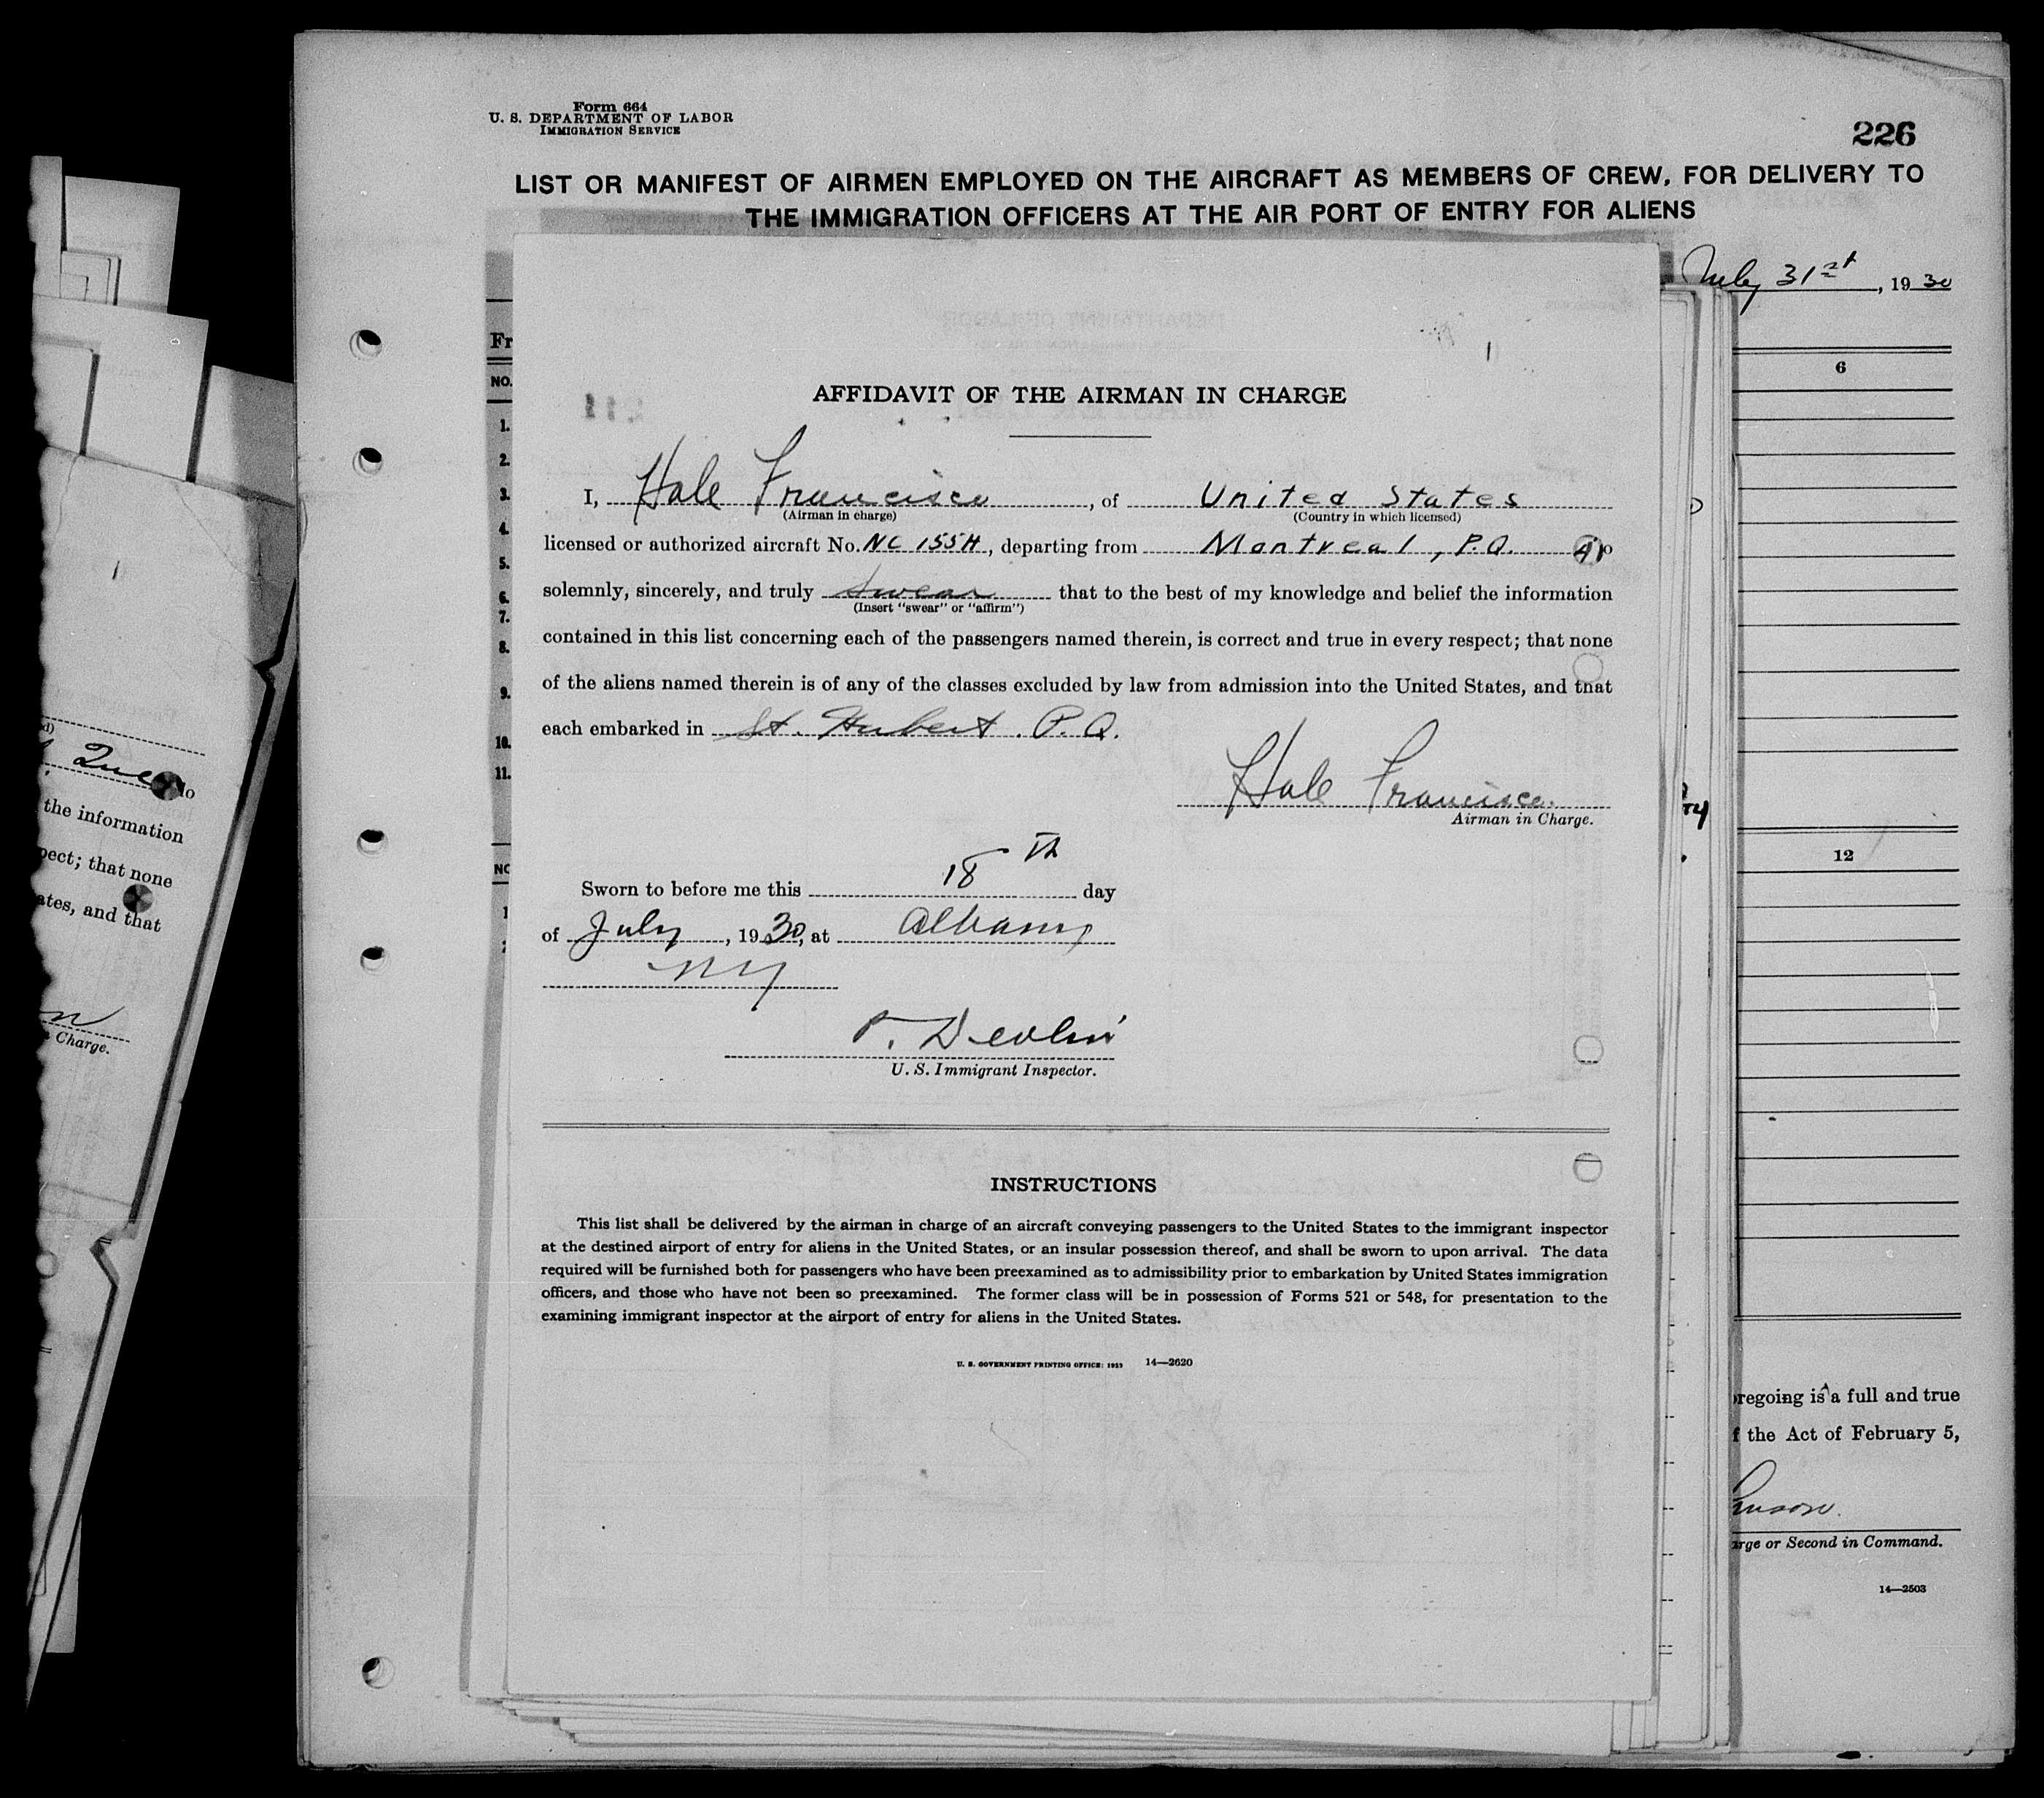 Form 664
U. S. DEPARTMENT OF LABOR
IMMIGRATION SERVICE
226
LIST OR MANIFEST OF AIRMEN EMPLOYED ON THE AIRCRAFT AS MEMBERS OF CREW, FOR DELIVERY TO
THE IMMIGRATION OFFICERS AT THE AIR PORT OF ENTRY FOR ALIENS
July 31st, 1930
Fr
NO.
1.
2.
3.
4.
5.
6.
7.
8.
9.
10.
11.
NO
6
12
1
AFFIDAVIT OF THE AIRMAN IN CHARGE
I, Hale Francisco, of United States
(Airman in charge) (Country in which licensed)
licensed or authorized aircraft No. NC 155H, departing from Montreal, P.Q.
solemnly, sincerely, and truly swear that to the best of my knowledge and belief the information
(Insert "swear" or "affirm")
contained in this list concerning each of the passengers named therein, is correct and true in every respect; that none
of the aliens named therein is of any of the classes excluded by law from admission into the United States, and that
each embarked in St. Hubert. P.Q.
Hale Francisco.
Airman in Charge.
Sworn to before me this 18th day
of July, 1930, at Albany
NY
P. Devlin
U. S. Immigrant Inspector.
INSTRUCTIONS
This list shall be delivered by the airman in charge of an aircraft conveying passengers to the United States to the immigrant inspector
at the destined airport of entry for aliens in the United States, or an insular possession thereof, and shall be sworn to upon arrival. The data
required will be furnished both for passengers who have been preexamined as to admissibility prior to embarkation by United States immigration
officers, and those who have not been so preexamined. The former class will be in possession of Forms 521 or 548, for presentation to the
examining immigrant inspector at the airport of entry for aliens in the United States.
U. S. GOVERNMENT PRINTING OFFICE: 14—2620
regoing is a full and true
f the Act of February 5,
arge or Second in Command.
14—2503
1
Que do
the information
pect; that none
ates, and that
Charge.